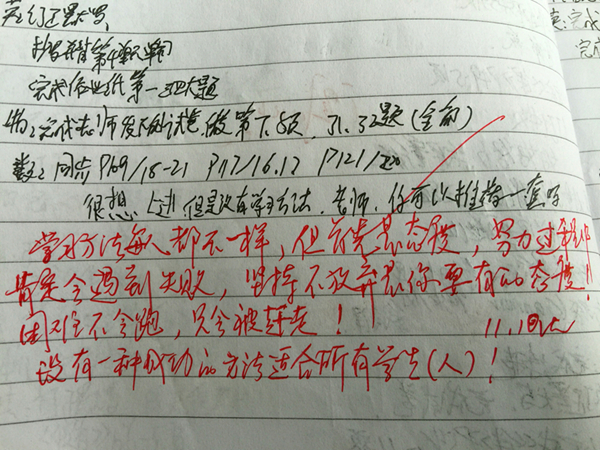 英:订正默写
抄写并背第4单元单词
完成作业纸第一、三、四大题
物:完成老师发的试卷,做第7、8页,31、32题(全部)
数:同步P109/18-21 P117/16.17 P121/20
很想上进但是没有学习方法,老师,你可以推荐一套吗
学习方法每人都不一样,但首先是态度,努力过程中
肯定会遇到失败,坚持不放弃是你要有的态度!
困难不会跑,只会被赶走!
11.1
没有一种成功的方法适合所有学生(人)!
完成
完成